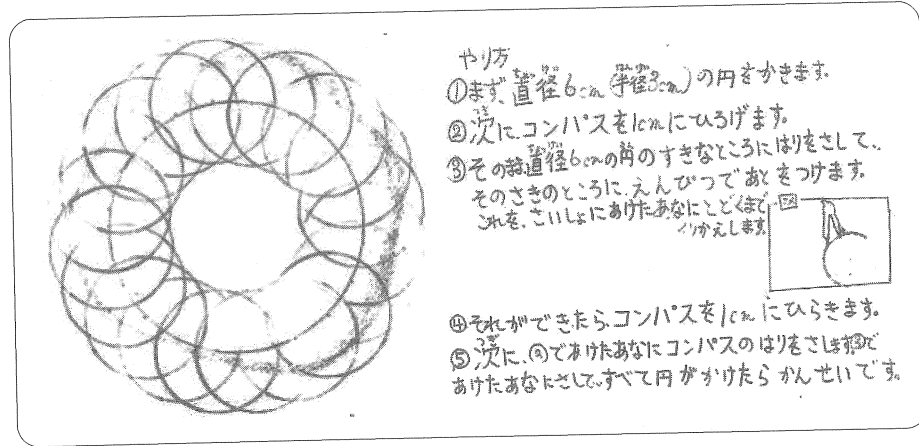 やり方
①まず、直径6cm(半径3cm)の円をかきます。
②次に、コンパスを1cmにひろげます。
③そのまま直径6cmの円のすきなところにはりをさして、
そのさきのところに、えんぴつであとをつけます。
これを、さいしょにあけたあなにとどくまで
くりかえします
図
④それができたら、コンパスを1cmにひらきます。
⑤次に、③であけたあなにコンパスのはりをさします。③で
あけたあなにさして、すべて円がかけたらかんせいです。